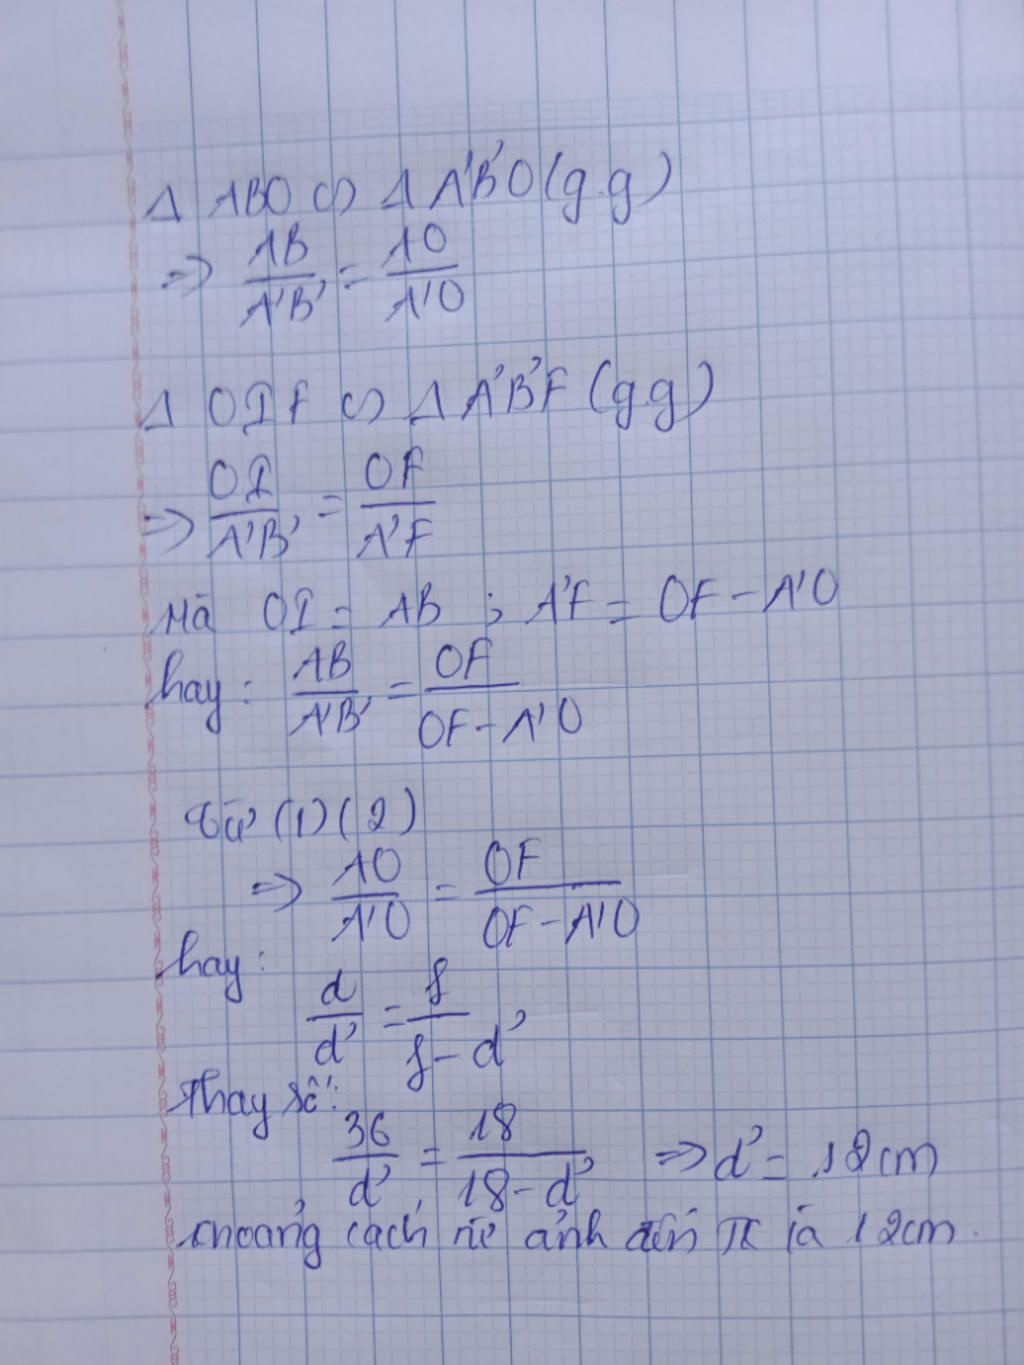 Δ ABO ∽ Δ A'B'O (g.g)
⇒ AB/A'B' = AO/A'O
Δ OIF ∽ Δ A'B'F (g.g)
⇒ OI/A'B' = OF/A'F
Mà OI = AB ; A'F = OF - A'O
hay: AB/A'B' = OF/(OF - A'O)
Từ (1) (2)
⇒ AO/A'O = OF/(OF - A'O)
hay:
d/d' = f/(f - d')
Thay số:
36/d' = 18/(18 - d') ⇒ d' = 12cm
Khoảng cách từ ảnh đến TK là 12cm.